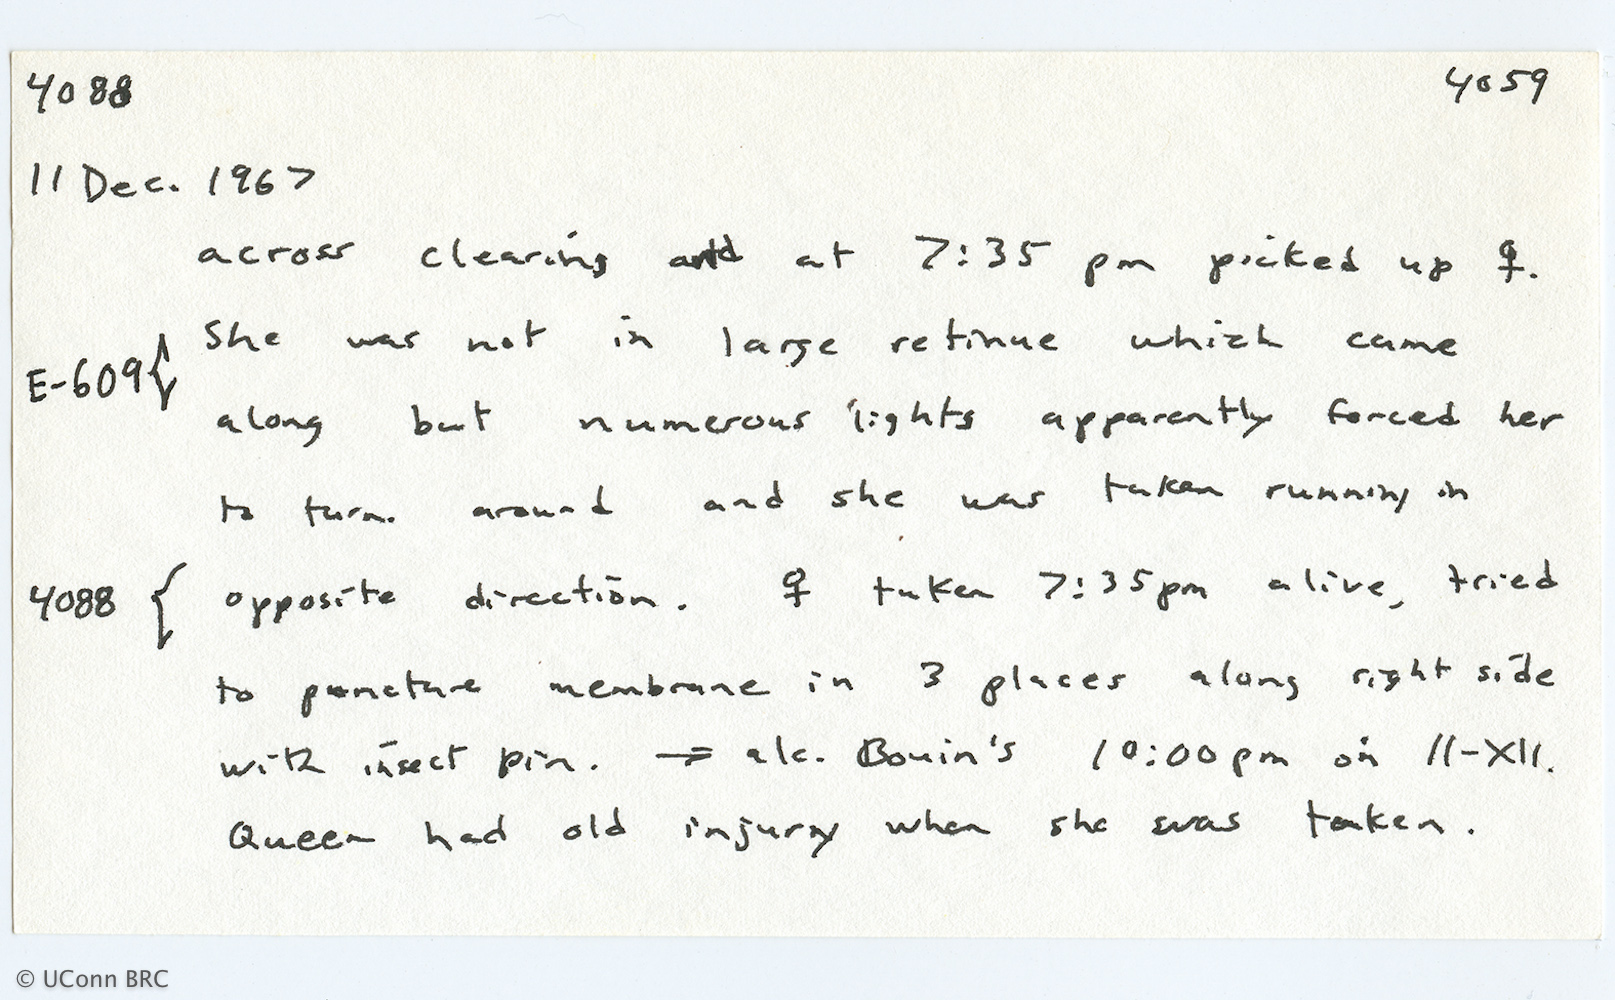 4088 4059
11 Dec. 1967
across clearing and at 7:35 pm picked up ♀.
She was not in large retinue which came
E-609 {
along but numerous lights apparently forced her
to turn around and she was taken running in
4088 { opposite direction. ♀ taken 7:35pm alive, tried
to puncture membrane in 3 places along right side
with insect pin. → alc. Bouin's 10:00pm on 11-XII.
Queen had old injury when she was taken.
© UConn BRC